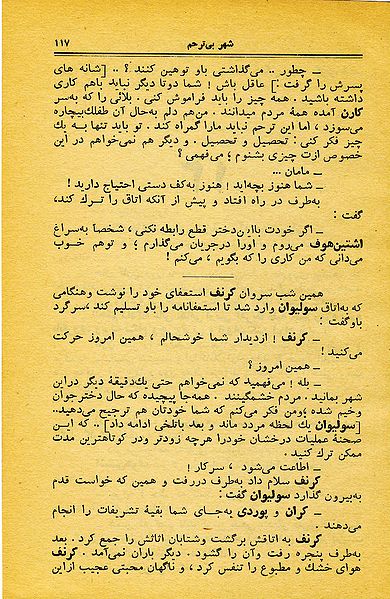 شهر بی‌ترحم ۱۱۷
ــ چطور .. می‌گذاشتی باو توهین کنند ؟ .. [شانه های
پسرش را گرفت :] عاقل باش ! شما دوتا دیگر نباید باهم کاری
داشته باشید . همه چیز را باید فراموش کنی . بلائی را که به‌سر
کارن آمده همهٔ مردم میدانند . من‌هم دلم به‌حال آن طفلك‌بیچاره
می‌سوزد ، اما این ترحم نباید مارا گمراه کند . تو باید تنهابه یك
چیز فکر کنی : تحصیل و تحصیل . و دیگر هم نمی‌خواهم در این
خصوص ازت چیزی بشنوم ؛ می‌فهمی ؟
ــ مامان ...
ــ شما هنوز بچه‌اید ! هنوز به‌کف دستی احتیاج دارید !
به‌طرف در راه افتاد و پیش از آنکه اتاق را ترك کند،
گفت :
ــ اگر خودت بااین‌دختر قطع رابطه نکنی ، شخصاً به‌سراغ
اشتین‌هوف می‌روم و اورا درجریان می‌گذارم ؛ و توهم خوب
می‌دانی که من کاری را که بگویم ، می‌کنم !
همین شب سروان کرنف استعفای خود را نوشت وهنگامی
که به‌اتاق سولیوان وارد شد تا استعفانامه را باو تسلیم کند ،سرگرد
باوگفت :
ــ کرنف ! ازدیدار شما خوشحالم ، همین امروز حرکت
می‌کنید !
ــ همین امروز ؟
ــ بله ! می‌فهمید که نمی‌خواهم حتی یك‌دقیقهٔ دیگر دراین
شهر بمانید . مردم خشمگینند . همه‌جا پیچیده که حال دخترجوان
وخیم شده ؛ومن فکر می‌کنم که شما خودتان هم ترجیح می‌دهید..
[سولیوان یك لحظه مردد ماند و بعد باتلخی ادامه داد] .. که این
صحنهٔ عملیات درخشان خودرا هرچه زودتر ودر کوتاهترین مدت
ممکن ترك کنید .
ــ اطاعت می‌شود ، سرکار !
کرنف سلام داد به‌طرف دررفت و همین که خواست قدم
به‌بیرون گذارد سولیوان گفت :
ــ کران و پوردی به‌جـای شما بقیهٔ تشریفات را انجام
می‌دهند .
کرنف به اتاقش برگشت وشتابان اثاثش را جمع کرد . بعد
به‌طرف پنجره رفت وآن را گشود . دیگر باران نمی‌آمد . کرنف
هوای خشك و مطبوع را تنفس کرد ، و ناگهان محبتی عجیب ازاین